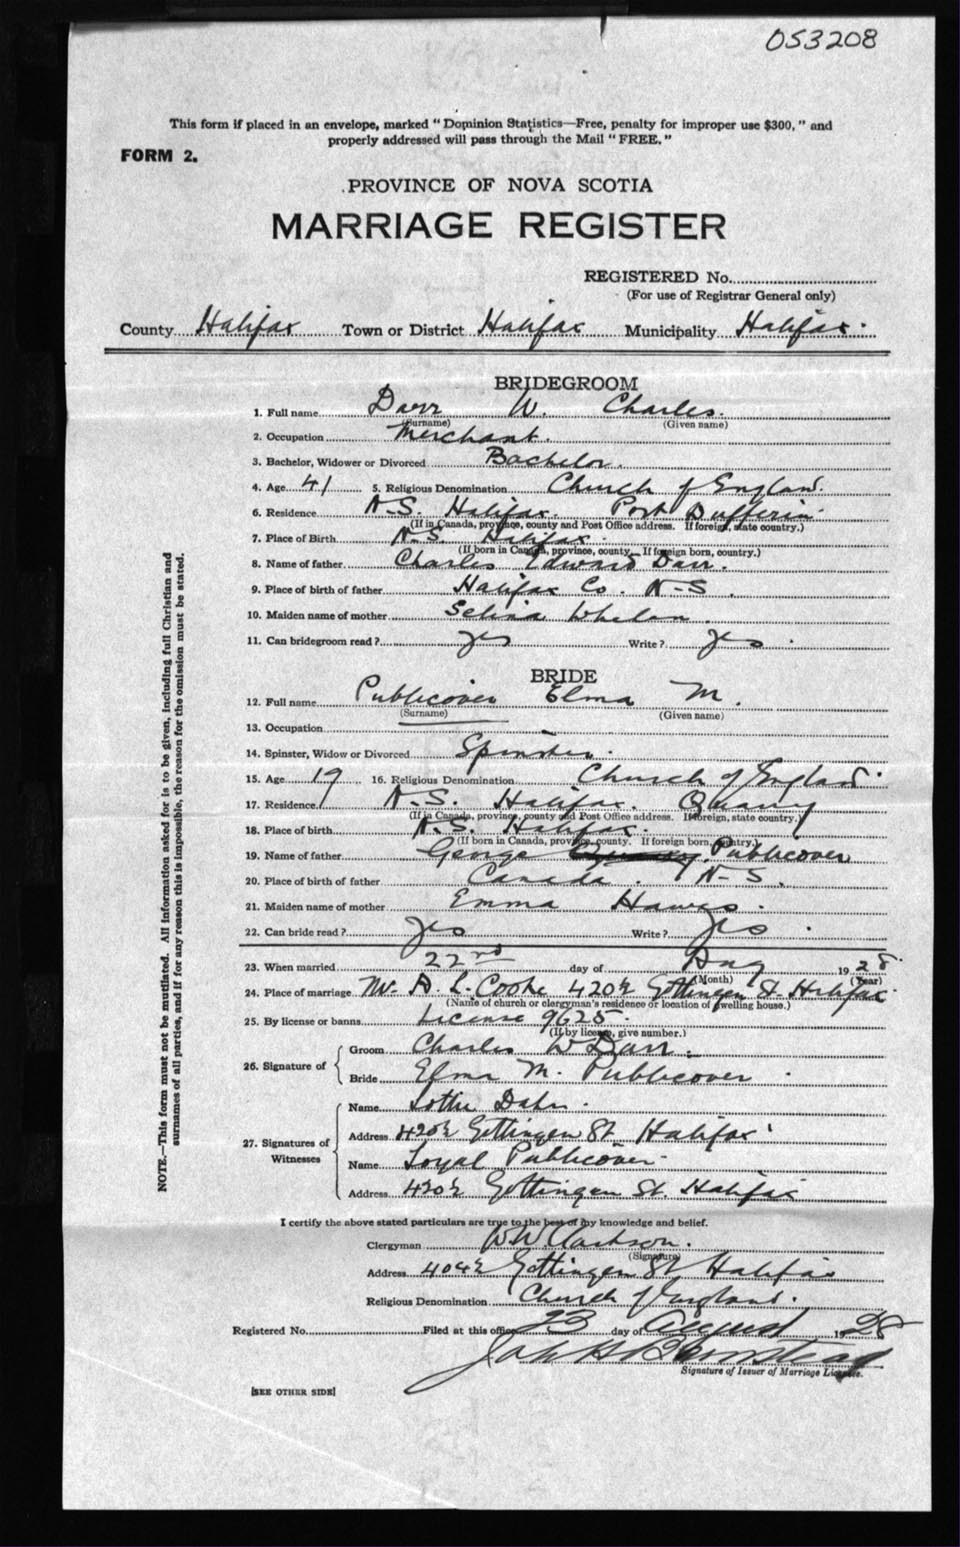 053208
This form if placed in an envelope, marked "Dominion Statistics—Free, penalty for improper use $300," and
properly addressed will pass through the Mail "FREE."
FORM 2.
PROVINCE OF NOVA SCOTIA
MARRIAGE REGISTER
REGISTERED No.
(For use of Registrar General only)
County Halifax Town or District Halifax Municipality Halifax.
BRIDEGROOM
1. Full name Darr W. Charles.
(Surname) (Given name)
2. Occupation Merchant.
3. Bachelor, Widower or Divorced Bachelor.
4. Age 41 5. Religious Denomination Church of England.
6. Residence N.S. Halifax. Port Dufferin
(If in Canada, province, county and Post Office address. If foreign, state country.)
7. Place of Birth N.S. Halifax.
(If born in Canada, province, county. If foreign born, country.)
8. Name of father Charles Edward Darr.
9. Place of birth of father Halifax Co. N-S.
10. Maiden name of mother Selina Whelan.
11. Can bridegroom read? yes Write? yes.
BRIDE
12. Full name Publicover Elma M.
(Surname) (Given name)
13. Occupation
14. Spinster, Widow or Divorced Spinster.
15. Age 19 16. Religious Denomination Church of England.
17. Residence N.S. Halifax. Quarry
(If in Canada, province, county and Post Office address. If foreign, state country.)
18. Place of birth N.S. Halifax.
(If born in Canada, province, county. If foreign born, country.)
19. Name of father George Publicover
20. Place of birth of father Canada. N-S.
21. Maiden name of mother Emma Hawes.
22. Can bride read? yes Write? yes.
23. When married 22nd day of Aug 1928.
(Month) (Year)
24. Place of marriage Mr. A. L. Cooke 420½ Gottingen St Halifax.
(Name of church or clergyman's residence or location of dwelling house.)
25. By license or banns License 9625.
(If by license, give number.)
26. Signature of
Groom Charles W Darr.
Bride Elma M. Publicover.
27. Signatures of Witnesses
Name Lottie
Address 420½ Gottingen St. Halifax
Name Loyal Publicover
Address 420½ Gottingen St. Halifax
I certify the above stated particulars are true to the best of my knowledge and belief.
Clergyman W. W. Clarkson.
(Signature)
Address 404½ Gottingen St Halifax
Religious Denomination Church of England.
Registered No. Filed at this office 23 day of August 1928
Signature of Issuer of Marriage License.
[SEE OTHER SIDE]
NOTE.—This form must not be mutilated. All information asked for is to be given, including full Christian and
surnames of all parties, and if for any reason this is impossible, the reason for the omission must be stated.